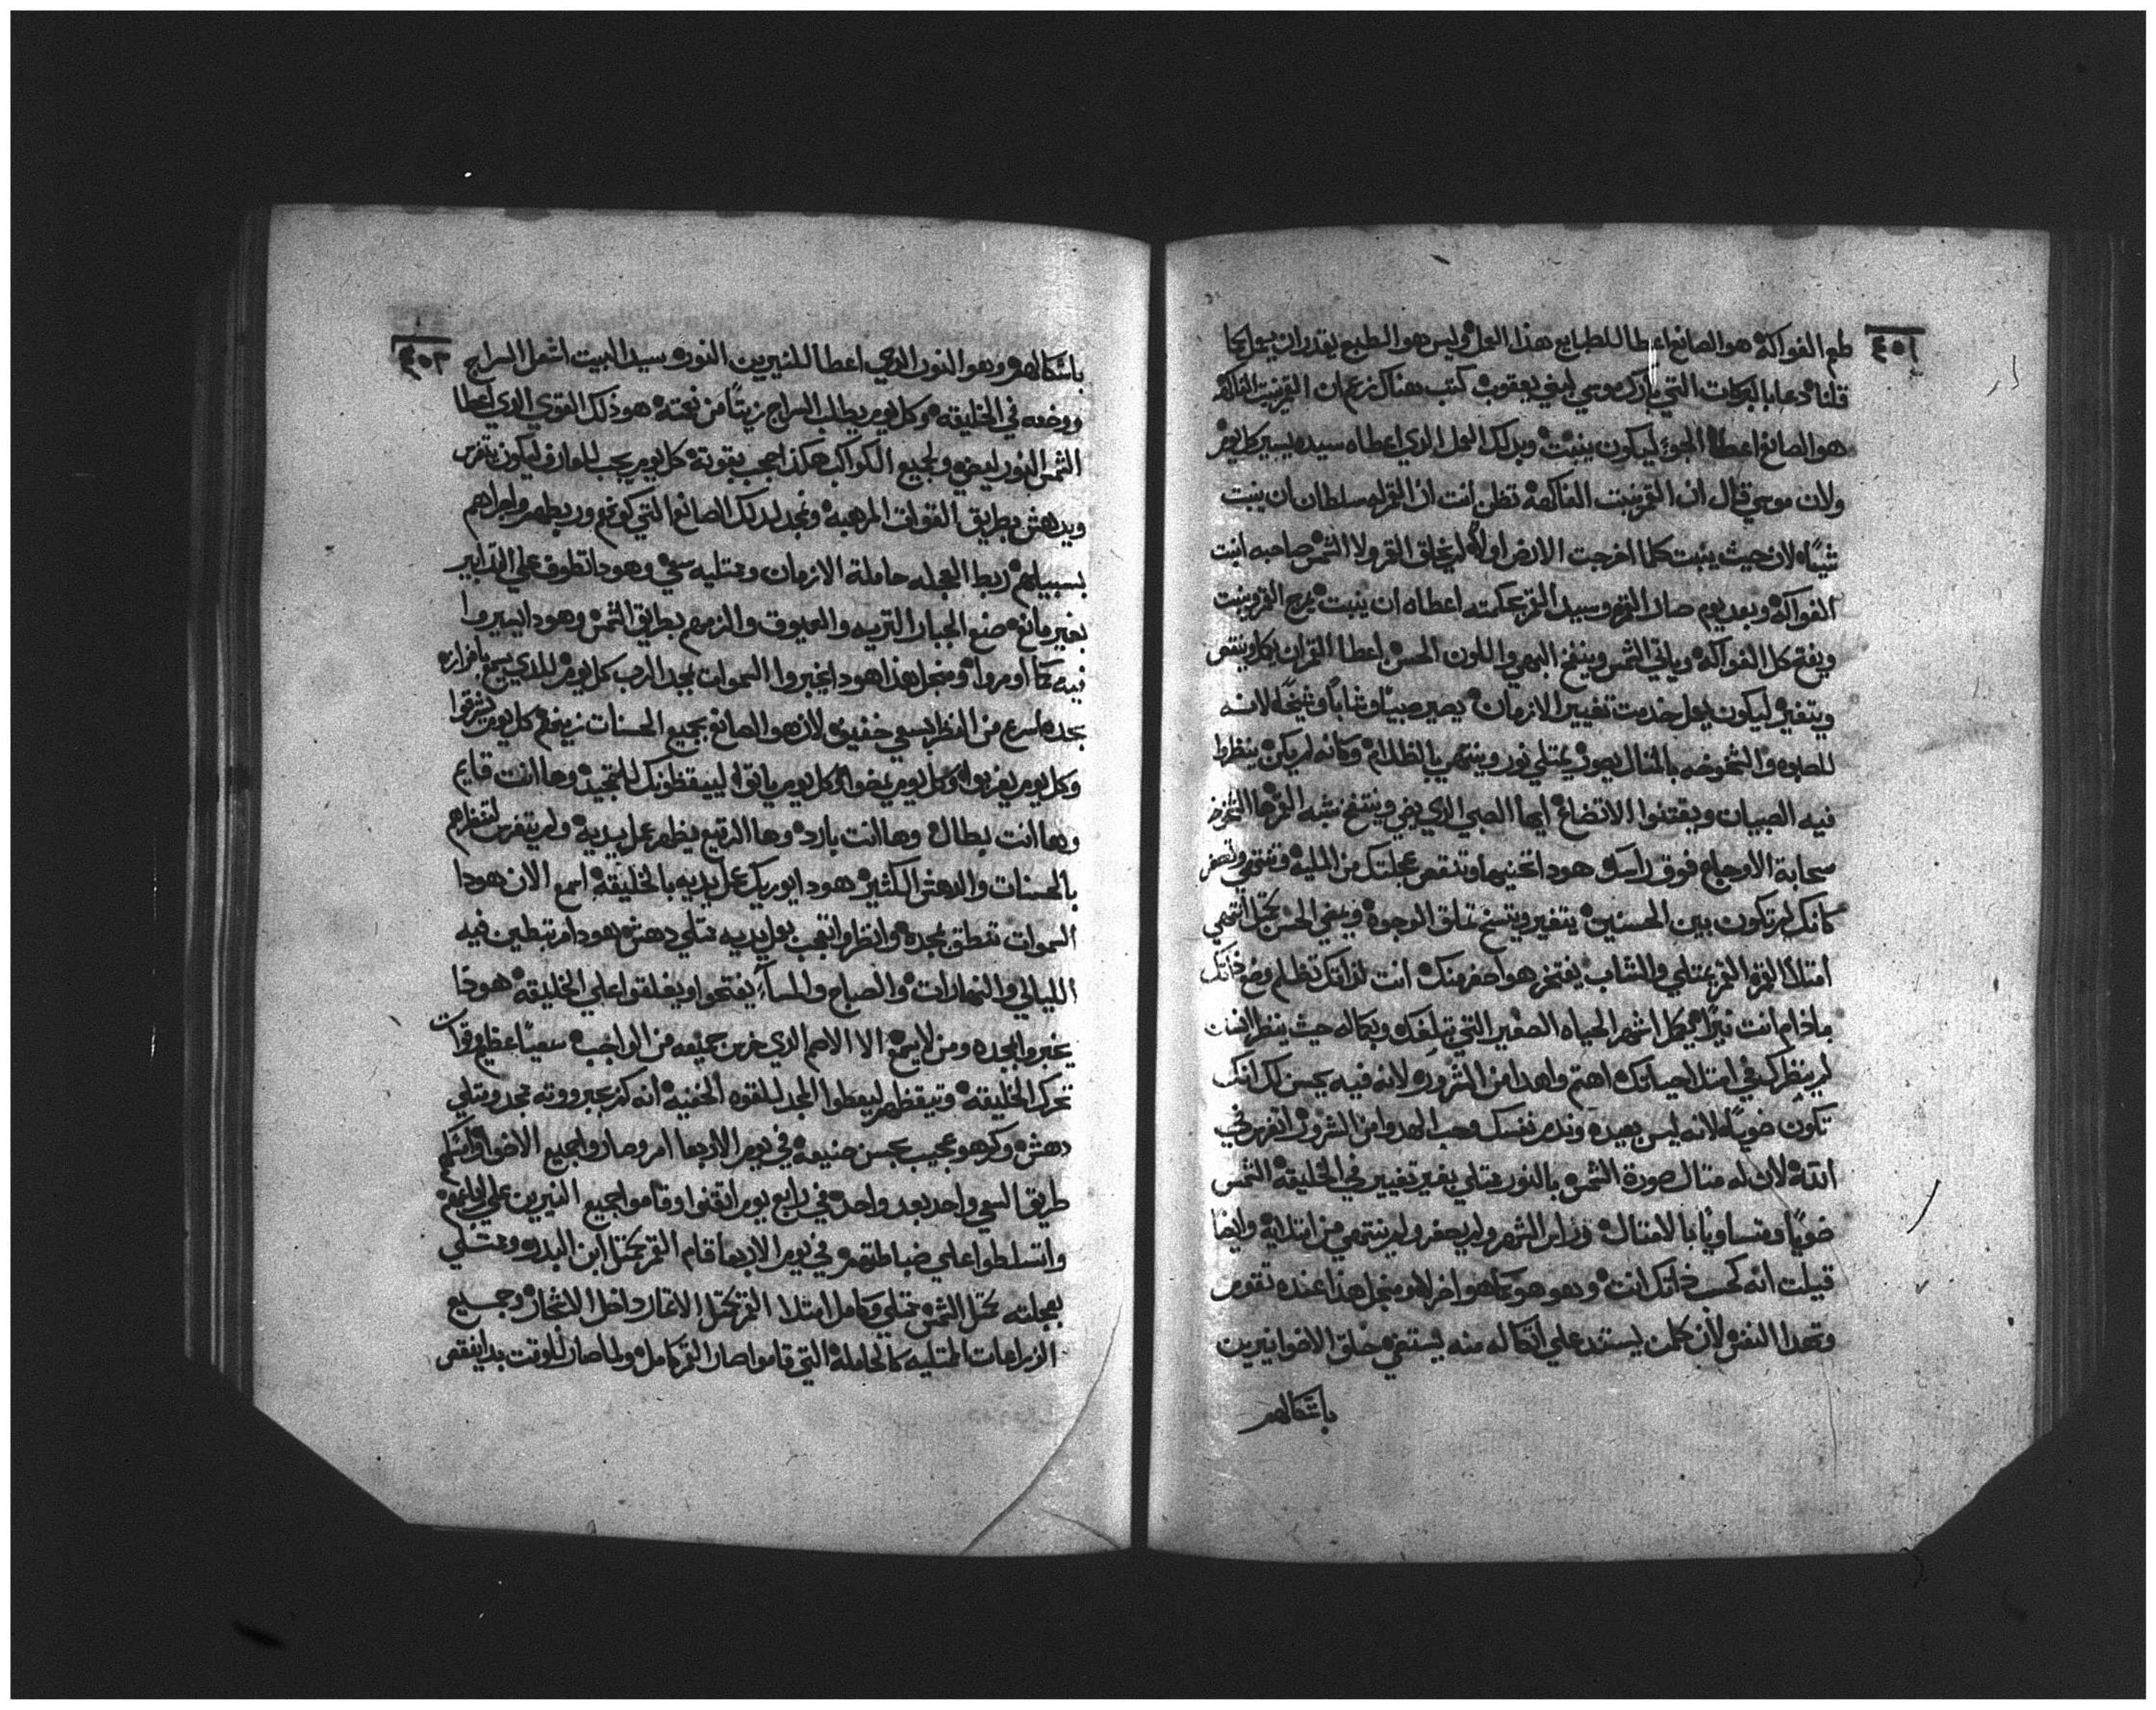 ٤٥١
طعم الفواكه هو الصانع اعطا للطبايع هذا العمل وليس هو الطبع يقدر ان يعمل كما
قلنا دعا بالبركات التي بارك موسي لبني يعقوب كتب هناك زعم ان القمر ينبت الفاكهه
هو الصانع اعطا الجوء ليكون ينبت وبدلك العمل الدي اعطاه سيده يسير كل يوم
ولان موسي قال ان القمر ينبت الفاكهه تظن انت ان القمر له سلطان ان ينبت
شياء لان حيث ينبت كلما اخرجت الارض اولاً لم يخلق القمر ولا الشمس صاحبه انبت
الفواكه وبعد يوم صار القمر وسيد القمر بحكمته اعطاه ان ينبت يرج القمر وينبت
ويفتح كل الفواكه وياتي الشمس وينفخ البهي واللون الحسن اعطا القمر ان يكمل وينقص
ويتغير ليكون يعمل خدمت تغيير الازمان يصير صبياً وشاباً وشيخاً لانه
للصبوه والشيخوخه بالمثال يصور يمتلي نور وينتهي بالظلام وكانه لم يكن ينظروا
فيه الصبيان ويقتنوا الاتضاع ايها الصبي الدي يضي وينتفخ شبه القمر ها الشيخوخه
سحابة الاوجاع فوق راسك هودا تحنيها وتنقص عجلتك من المليه وتنتهي وتصغر
كانك لم تكون بين الحسنين يتغير ويتسخ خلق الوجوه ويضي الحسن بختل انتهي
امتلاء القمر القمر يمتلي والشاب يفتخر هو احقر منك انت لذاتك تظلم وضع ذاتك
مادام انت نيراً كل اشهر الحياه الصغير التي تبلغك وبكماله حيث ينظر الشاب
لم ينظرك في امتلا حياتك اهتم واهدا من الشروره لانه فيه يحسن لك انك
تكون ضوياً لانه ليس بعيده وندم نفسك وحب الهدوا من الشرور
انته لان له مثال صورة الشمس بالنور ممتلي بغير تغيير في الخليقه الشمس
ضوياً ومتساوياً بالامثال ولم يصغر ولم ينتهي من ابتدايه وايضاً
قبلت انه كحسب ذاتك انت وهو هو كما هو اخر لاهو منجل هذا عنده تقوم
وتهدا النفس لان كلمن يستند علي اتكاله منه يستضي خلق الاضوا نيرين
باشكالهم
٤٥٢
باشكالهم وهو النور الدي اعطا للنيرين النوره سيد البيت اشعل السراج
ووضعه في الخليقه وكل يوم يطلب السراج زيتاً من نعمته هو ذلك القوي الدي اعطا
الشمس النور ليضي ولجميع الكواكب هكذا عجب بقوته كل يوم يجب للعارف ليكون يتفرس
ويدهش بطريق القوات المرهبه ونمجد لدلك الصانع التي كونهم وربطهم واجراهم
بسبيلهم ربط العجله حاملة الازمان وممتليه سعي وهودا تطوف علي التدابير
بغير مانع صنع الجبار التريه والعيوق والزمهم بطريق الشمس وهودا يسيروا
فيه كما اومروا ومنجل هذا هودا يخبروا السموات بمجد الرب كل يوم للدي يسبح بافرازه
بمجده اسرع من النظر يسعي خفيه لان هو الصانع بجميع الحسنات زينهم كل يوم يشرقوا
وكل يوم يغربوا وكل يوم يمضوا وكل يوم ياتوا ليستيقظونك للتمجيد وها انت قايم
وها انت بطال وها انت بارد وها الرقيع يظهر عمل يديه ولم يتفرس لتنظرهم
بالحسنات والدهش الكثير هودا يوريك عمل يديه بالخليقه اسمع الان هودا
السموات تنطق بمجده وانظر وانعجب بعمل يديه ممتلي دهش هودا مرتبطين فيه
الليالي والنهارات والصباح والمساء يفتحوا ويغلقوا علي الخليقه هودا
يخبروا بمجده ومن لا يسمع الا الاصم الدي خرس جميعه من الواجب سعياً عظيم وقوات
تحرك الخليقه وتيقظهم ليعطوا المجد للقوه الخفيه انه كم عبروته تمجد ويمتلي
دهش وكم هو عجيب بحسن صنيعه في يوم الاربعا امر وصاروا جميع الاضوا
طريق السعي واحد بعد واحد في رابع يوم اتقنوا وقاموا جميع النيرين علي
واتسلطوا علي ضباطتهم في يوم الاربعا قام القمر بمتل ابن البدر وممتلي
بعجلته بمتل الشمس ممتلي وكامل امتلا القمر بمتل الاثمار داخل الاشجار وجميع
الزراعات الممتليه كالحامله التي قاموا صار القمر كامل ولما صار الوقت بدا ينقص